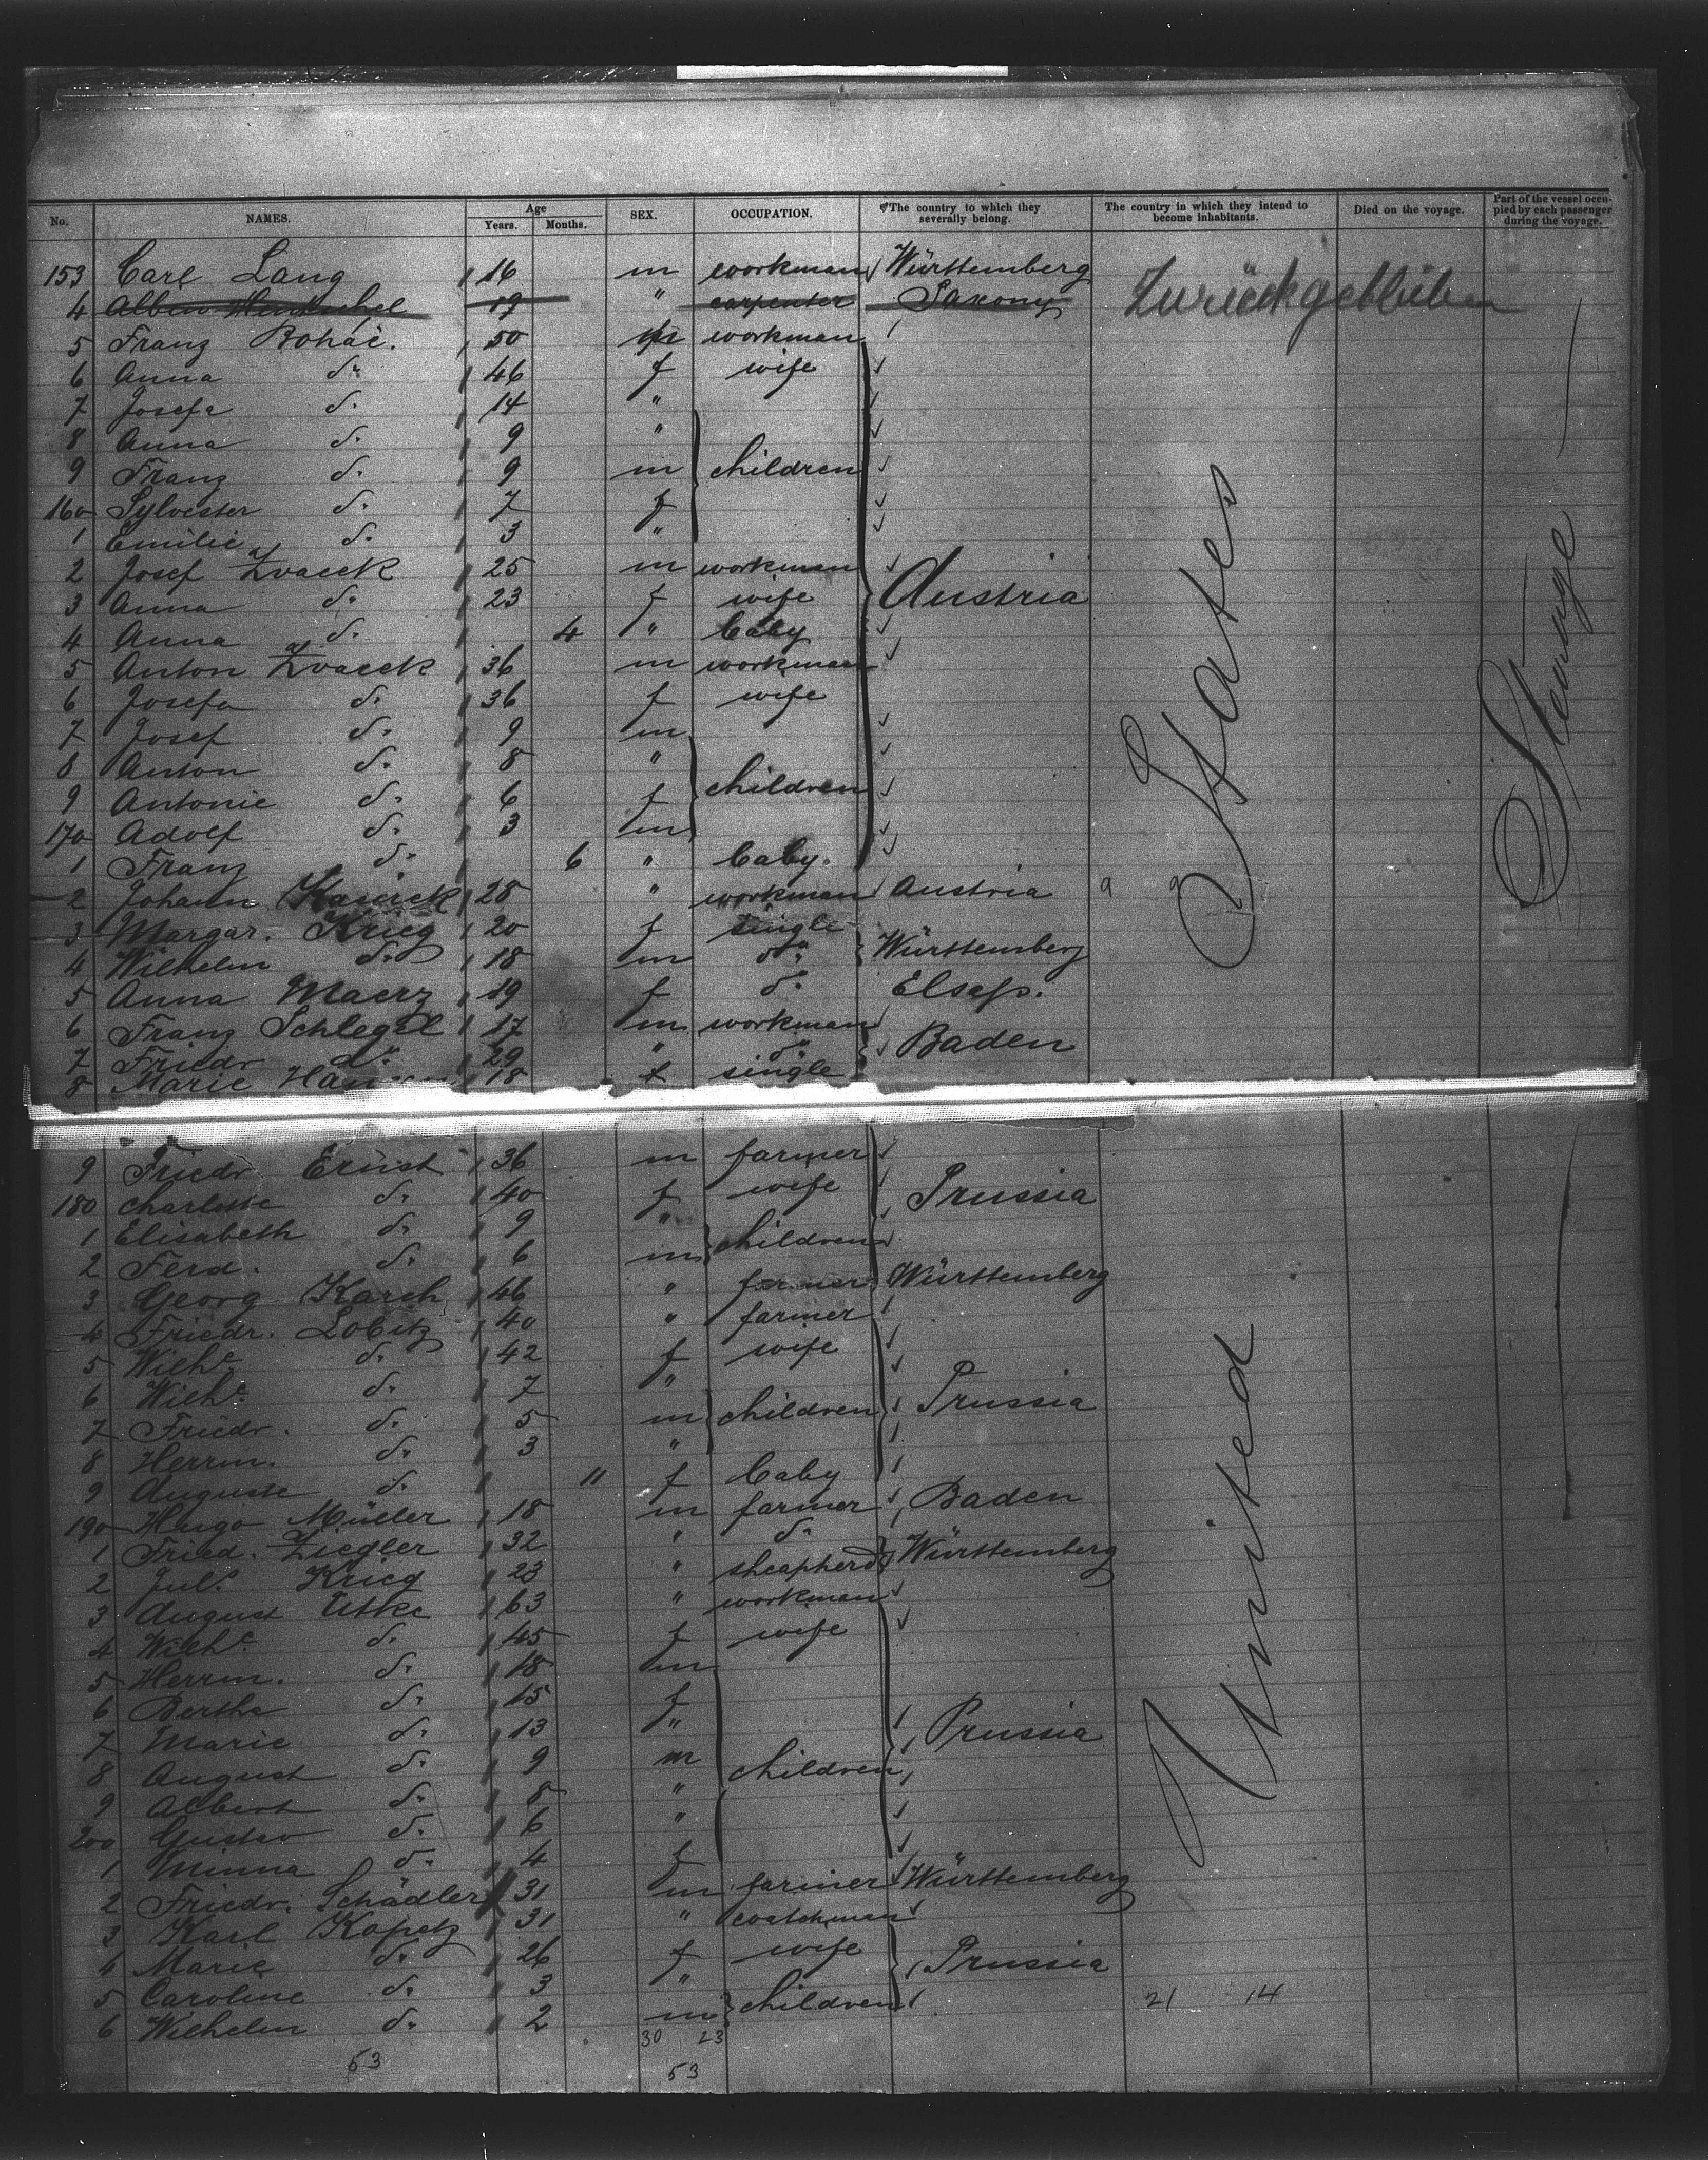 No. NAMES. Age Years. Months. SEX. OCCUPATION. The country to which they severally belong. The country in which they intend to become inhabitants. Died on the voyage. Part of the vessel occupied by each passenger during the voyage.
153 Carl Lang 16 m workman Württemberg
4 Albin Hentschel 19 " carpenter Saxony Zurückgeblieben
5 Franz Boháč. 50 m workman
6 Anna do. 46 f wife
7 Josefa do. 14 "
8 Anna do. 9 "
9 Franz do. 9 m children
160 Sylvester do. 7 f
1 Emilie do. 3 "
2 Josef Zvacek 25 m workman
3 Anna do. 23 f wife Austria
4 Anna do. 4 " baby
5 Anton Zvacek 36 m workman
6 Josefa do. 36 f wife
7 Josef do. 9 m
8 Anton do. 8 "
9 Antonie do. 6 f children
170 Adolf do. 3 m
1 Franz do. 6 " baby.
2 Johann 28 " workman Austria
3 Margar. Krieg 20 f single
4 Wilhelm do. 18 m do. Württemberg
5 Anna Maerz 19 f do. Elsaß.
6 Franz Schlegel 17 m workman
7 Friedr do. 29 " do. Baden
8 Marie 18 f single
9 Friedr Ernst 36 m farmer
180 Charlotte do. 40 f wife Prussia
1 Elisabeth do. 9 "
2 Ferd. do. 6 m children
3 Georg Karch 46 " farmer Württemberg
4 Friedr. Lobitz 40 " farmer
5 Wilhe do. 42 f wife
6 Wilhe do. 7 "
7 Friedr. do. 5 m children Prussia
8 Herrm. do. 3 "
9 Auguste do. 11 f baby
190 Hugo Müller 18 m farmer Baden
1 Fried. Ziegler 32 " do.
2 Juls Krieg 23 " sheapherd Württemberg
3 August Utke 63 " workman
4 Wilhe do. 45 f wife
5 Herrm. do. 18 m
6 Bertha do. 15 f
7 Marie do. 13 " Prussia
8 August do. 9 m children
9 Albert do. 8 "
200 Gustav do. 6 "
1 Minna do. 4 f
2 Friedr. Schädler 31 m farmer Württemberg
3 Karl Kopetz 31 " watchman
4 Marie do. 26 f wife Prussia
5 Caroline do. 3 "
6 Wilhelm do. 2 m children 21 14
30 23
53 53
United States
Steerage